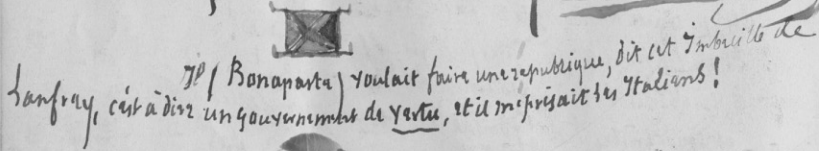 Il (Bonaparte) voulait faire une republique, dit cet imbecille de
Lanfrey, c'est à dire un gouvernement de vertu, et il méprisait les Italiens!